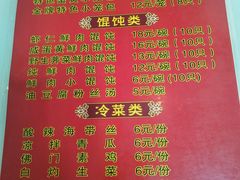 金牌特色小笼包 12元/笼
馄饨类
虾仁鲜肉馄饨 18元/碗(10只)
咸蛋黄鲜肉馄饨 16元/碗(10只)
野生荠菜鲜肉馄饨 15元/碗(10只)
纯鲜肉馄饨 12元/碗(10只)
鲜肉小馄饨 6元/碗
油豆腐粉丝汤 5元/碗
冷菜类
酸辣海带丝 6元/份
凉拌青瓜 6元/份
佛门素鸡 6元/份
白灼生菜 6元/份